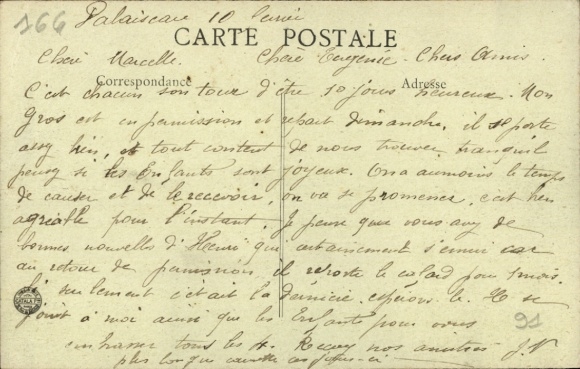 166
Palaiseau 10 Février
CARTE POSTALE
Chère Marcelle. Chère Eugénie. Chers Amis.
Correspondance Adresse
C'est chacun son tour d'être 10 jours heureux. Mon
Gros est en permission et repart dimanche, il se porte
assez bien, et tout content de nous trouver tranquil
pensez si les Enfants sont joyeux. On a au moins le temps
de causer et de le recevoir, on va se promener, c'est bien
agréable pour l'instant. Je pense que vous avez de
bonnes nouvelles d'Henri qui certainement s'ennui car
au retour de permission, il reporte le cafard pour 1 mois.
Si seulement c'était la dernière espérons le. H se
joint à moi ainsi que les Enfants pour vous
embrasser tous les 4. Recevez nos amitiés J.V
plus longue ces jours-ci
91